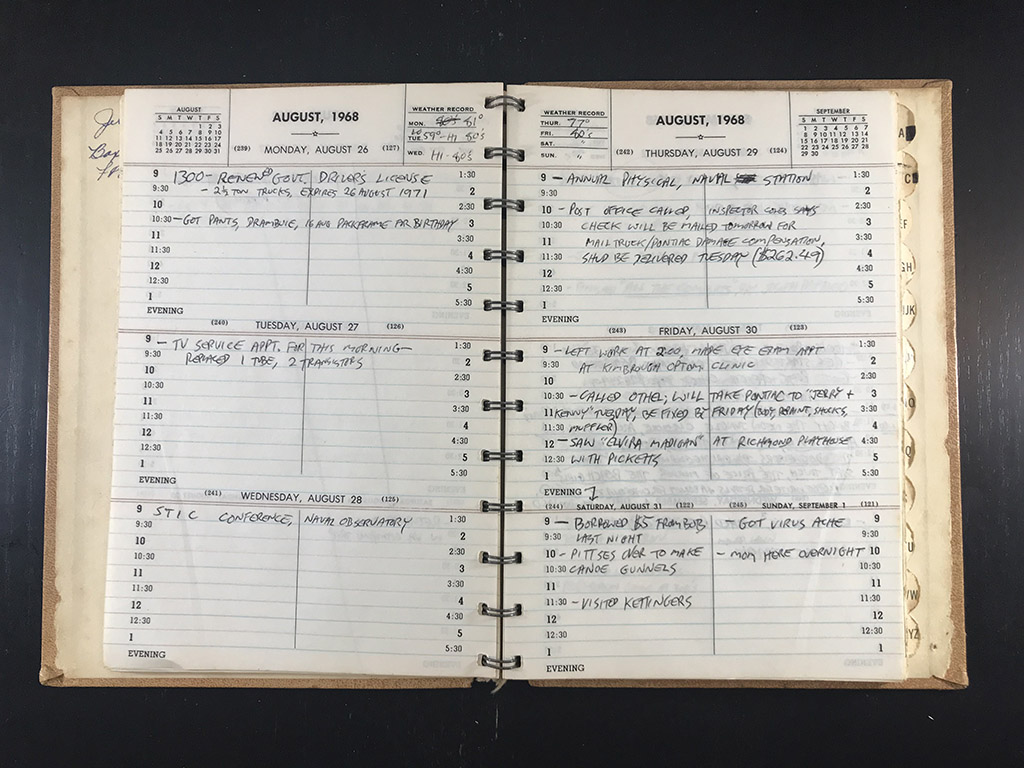 AUGUST
S M T W T F S
1 2 3
4 5 6 7 8 9 10
11 12 13 14 15 16 17
18 19 20 21 22 23 24
25 26 27 28 29 30 31
AUGUST, 1968
(239) MONDAY, AUGUST 26 (127)
WEATHER RECORD
MON. 81°
TUE. LO 59°-HI 80's
WED. HI-80's
9 1300-RENEW GOVT. DRIVERS LICENSE 1:30
9:30 - 2½ TON TRUCKS, EXPIRES 26 AUGUST 1971 2
10 2:30
10:30 -GOT PANTS, DRAMBUIE, AND PACKFRAME FOR BIRTHDAY 3
11 3:30
11:30 4
12 4:30
12:30 5
1 5:30
EVENING
(240) TUESDAY, AUGUST 27 (126)
9 - TV SERVICE APPT. FOR THIS MORNING- 1:30
9:30 REPLACED 1 TUBE, 2 TRANSISTORS 2
10 2:30
10:30 3
11 3:30
11:30 4
12 4:30
12:30 5
1 5:30
EVENING
(241) WEDNESDAY, AUGUST 28 (125)
9 STIC CONFERENCE, NAVAL OBSERVATORY 1:30
9:30 2
10 2:30
10:30 3
11 3:30
11:30 4
12 4:30
12:30 5
1 5:30
EVENING
WEATHER RECORD
THUR. 77°
FRI. 80's
SAT. "
SUN. "
AUGUST, 1968
(242) THURSDAY, AUGUST 29 (124)
SEPTEMBER
S M T W T F S
1 2 3 4 5 6 7
8 9 10 11 12 13 14
15 16 17 18 19 20 21
22 23 24 25 26 27 28
29 30
9 - ANNUAL PHYSICAL, NAVAL STATION 1:30
9:30 2
10 - POST OFFICE CALLED, INSPECTOR SAYS 2:30
10:30 CHECK WILL BE MAILED TOMORROW FOR 3
11 MAIL TRUCK/PONTIAC DAMAGE COMPENSATION, 3:30
11:30 SHUD BE DELIVERED TUESDAY ($262.49) 4
12 4:30
12:30 5
1 5:30
EVENING
(243) FRIDAY, AUGUST 30 (123)
9 - LEFT WORK AT 2:00, MADE EYE EXAM APPT 1:30
9:30 AT KIMBROUGH OPTOM CLINIC 2
10 2:30
10:30 - CALLED OTHEL; WILL TAKE PONTIAC TO "JERRY + 3
11 KENNY" TUESDAY, BE FIXED BY FRIDAY (BODY, REPAINT, SHOCKS, 3:30
11:30 MUFFLER) 4
12 - SAW "ELVIRA MADIGAN" AT RICHMOND PLAYHOUSE 4:30
12:30 WITH PICKETTS 5
1 5:30
EVENING
(244) SATURDAY, AUGUST 31 (122) (245) SUNDAY, SEPTEMBER 1 (121)
9 - BORROWED $5 FROM BOB - GOT VIRUS ACHE 9
9:30 LAST NIGHT 9:30
10 - PITTSES OVER TO MAKE - MOM HERE OVERNIGHT 10
10:30 CANOE GUNNELS 10:30
11 11
11:30 - VISITED KETTINGERS 11:30
12 12
12:30 12:30
1 1
EVENING
A
C
EF
GH
IJK